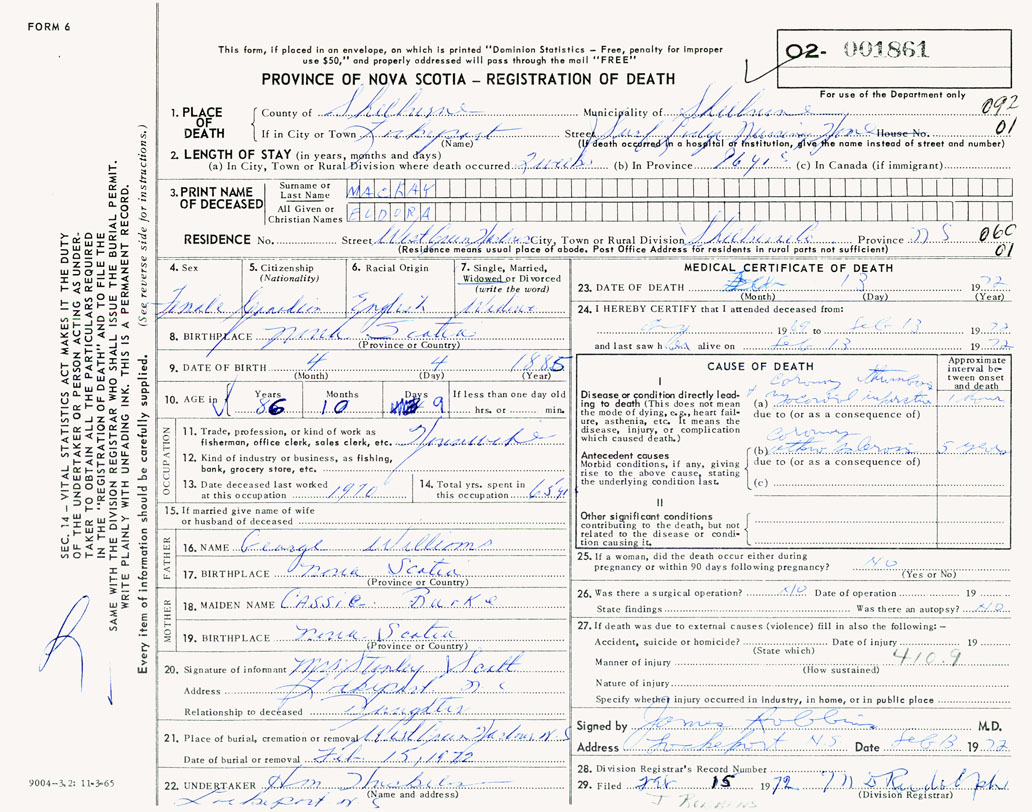 FORM 6
This form, if placed in an envelope, on which is printed "Dominion Statistics – Free, penalty for improper
use $50," and properly addressed will pass through the mail "FREE"
02- 001861
PROVINCE OF NOVA SCOTIA – REGISTRATION OF DEATH
For use of the Department only
1. PLACE OF DEATH County of Shelburne Municipality of Shelburne 092
If in City or Town Lockeport Street Surf Lodge Nursing Home House No. 01
(Name) (If death occurred in a hospital or institution, give the name instead of street and number)
2. LENGTH OF STAY (in years, months and days)
(a) In City, Town or Rural Division where death occurred 2 weeks (b) In Province 86 yrs (c) In Canada (if immigrant)
3. PRINT NAME OF DECEASED Surname or Last Name MACKAY
All Given or Christian Names EUDORA
RESIDENCE No. Street City, Town or Rural Division Shelburne Province N S 060
(Residence means usual place of abode. Post Office Address for residents in rural parts not sufficient) 01
4. Sex Female
5. Citizenship (Nationality) Canadian
6. Racial Origin English
7. Single, Married, Widowed or Divorced (write the word) Widow
8. BIRTHPLACE Nova Scotia
(Province or Country)
9. DATE OF BIRTH 4 4 1885
(Month) (Day) (Year)
10. AGE in Years 86 Months 10 Days 9 If less than one day old
hrs. or min.
OCCUPATION
11. Trade, profession, or kind of work as
fisherman, office clerk, sales clerk, etc. Housewife
12. Kind of industry or business, as fishing,
bank, grocery store, etc.
13. Date deceased last worked
at this occupation 1970
14. Total yrs. spent in
this occupation 65 yrs
15. If married give name of wife
or husband of deceased
FATHER
16. NAME George Williams
17. BIRTHPLACE Nova Scotia
(Province or Country)
MOTHER
18. MAIDEN NAME Cassie Burke
19. BIRTHPLACE Nova Scotia
(Province or Country)
20. Signature of informant Mrs Stanley Scott
Address Lockeport N S
Relationship to deceased Daughter
21. Place of burial, cremation or removal N S
Date of burial or removal Feb 15, 1972
22. UNDERTAKER
(Name and address)
Lockeport N S
MEDICAL CERTIFICATE OF DEATH
23. DATE OF DEATH Feb 13 1972
(Month) (Day) (Year)
24. I HEREBY CERTIFY that I attended deceased from:
1969 to Feb 13 1972
and last saw her alive on Feb 13 1972
CAUSE OF DEATH
Approximate interval between onset and death
I
Disease or condition directly leading to death (This does not mean the mode of dying, e.g., heart failure, asthenia, etc. It means the disease, injury, or complication which caused death.)
(a) coronary thrombosis
myocardial infarction 1 hour
due to (or as a consequence of)
Antecedent causes
Morbid conditions, if any, giving rise to the above cause, stating the underlying condition last.
(b) coronary
5 years
due to (or as a consequence of)
(c)
II
Other significant conditions
contributing to the death, but not related to the disease or condition causing it.
25. If a woman, did the death occur either during
pregnancy or within 90 days following pregnancy? NO
(Yes or No)
26. Was there a surgical operation? NO Date of operation 19
State findings Was there an autopsy? NO
27. If death was due to external causes (violence) fill in also the following: –
Accident, suicide or homicide? Date of injury 19
(State which)
Manner of injury 410.9
(How sustained)
Nature of injury
Specify whether injury occurred in Industry, in home, or in public place
Signed by James Robbins M.D.
Address Lockeport N.S Date Feb 13 1972
28. Division Registrar's Record Number
29. Filed Feb 15 1972
(Division Registrar)
SEC. 14 – VITAL STATISTICS ACT MAKES IT THE DUTY
OF THE UNDERTAKER OR PERSON ACTING AS UNDER-
TAKER TO OBTAIN ALL THE PARTICULARS REQUIRED
IN THE "REGISTRATION OF DEATH" AND TO FILE THE
SAME WITH THE DIVISION REGISTRAR WHO SHALL ISSUE THE BURIAL PERMIT.
WRITE PLAINLY WITH UNFADING INK. THIS IS A PERMANENT RECORD.
Every item of information should be carefully supplied. (See reverse side for instructions.)
9004-3.2: 11-3-65